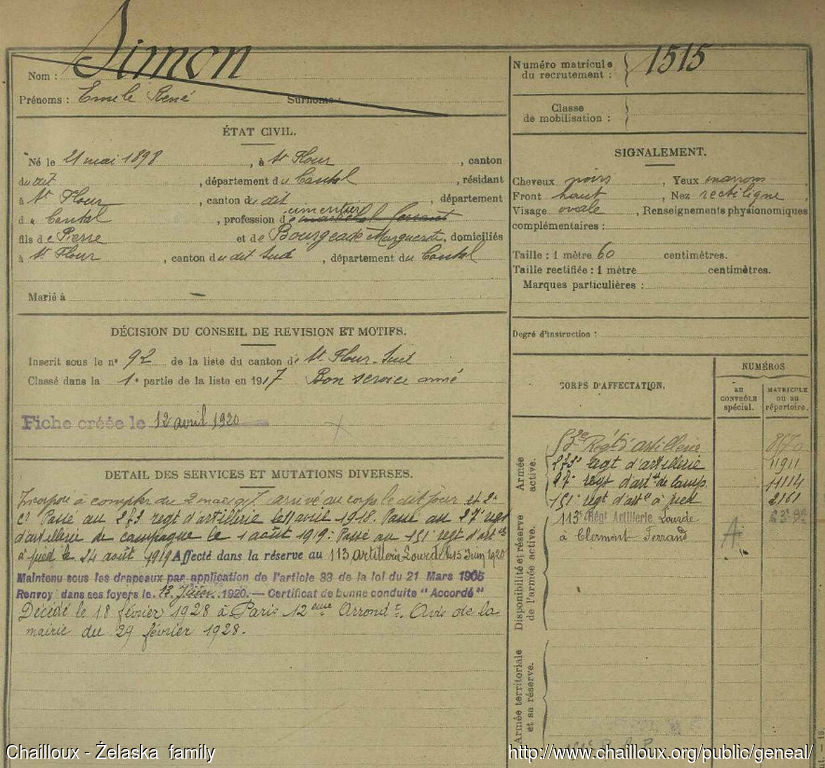 Nom : Simon
Prénoms : Emile René Surnoms :
ÉTAT CIVIL.
Né le 21 mai 1898, à St Flour, canton
du dit, département du Cantal, résidant
à St Flour, canton du dit, département
du Cantal, profession de cimentier
fils de Pierre et de Bourgeade Marguerite, domiciliés
à St Flour, canton du dit Sud, département du Cantal
Marié à —
DÉCISION DU CONSEIL DE REVISION ET MOTIFS.
Inscrit sous le n° 92 de la liste du canton de St Flour-Sud
Classé dans la 1e partie de la liste en 1917 Bon service armé
Fiche créée le 12 avril 1920
DETAIL DES SERVICES ET MUTATIONS DIVERSES.
Incorporé à compter du 2 mai 1917 arrivé au corps le dit jour et 2e
cr Passé au 273 regt d'artillerie le 11 avril 1918. Passé au 27e regt
d'artillerie de campagne le 1 août 1919. Passé au 151 regt d'artie
à pied le 24 août 1919 Affecté dans la réserve au 113 artillerie Lourde le 15 Juin 1920
Maintenu sous les drapeaux par application de l'article 33 de la loi du 21 Mars 1905
Renvoyé dans ses foyers le 1920. — Certificat de bonne conduite "Accordé"
Décédé le 18 février 1928 à Paris 12eme Arrondt. Avis de la
mairie du 29 février 1928.
Numéro matricule du recrutement : 1515
Classe de mobilisation :
SIGNALEMENT.
Cheveux noirs, Yeux marrons
Front haut, Nez rectiligne
Visage ovale, Renseignements physionomiques
complémentaires :
Taille : 1 mètre 60 centimètres.
Taille rectifiée : 1 mètre centimètres.
Marques particulières :
Degré d'instruction :
CORPS D'AFFECTATION.
NUMÉROS
AU CONTRÔLE spécial.
MATRICULE OU AU répertoire.
Armée active.
53e Régt d'artillerie
273e regt d'artillerie 11911
27e regt d'artie de camp. 11114
151e regt d'artie à pied 2161
Disponibilité et réserve de l'armée active.
113e Régt Artillerie Lourde
à Clermont Ferrand
Armée territoriale et sa réserve.
Chailloux - Żelaska family
http://www.chailloux.org/public/geneal/